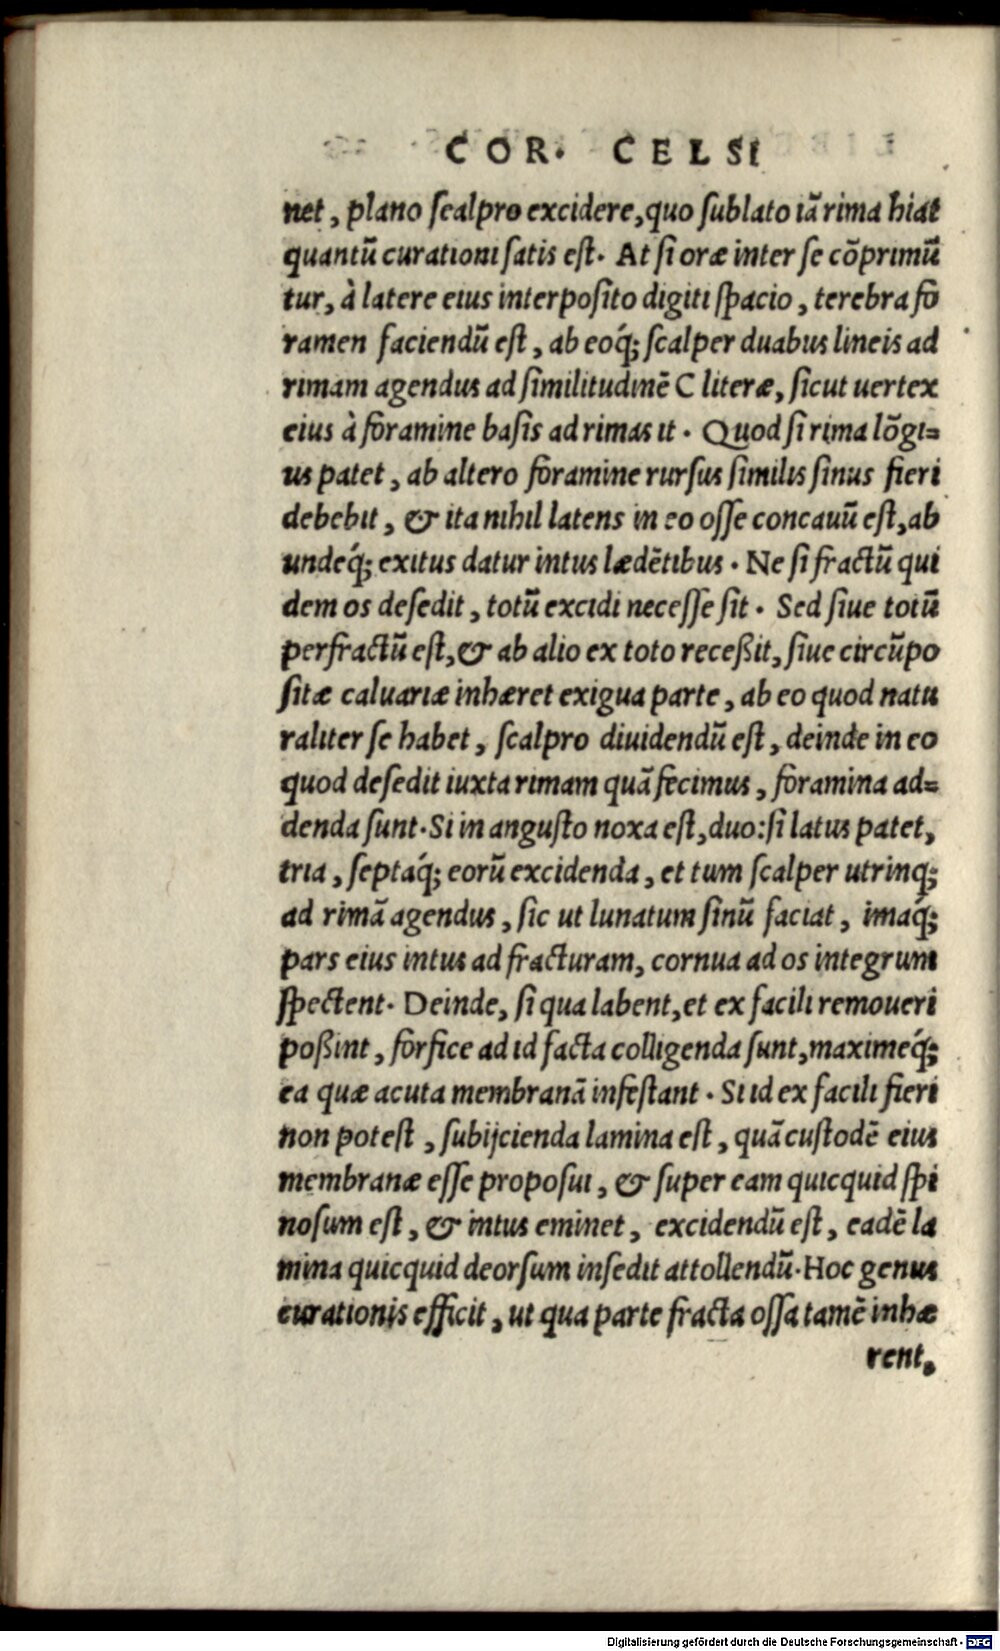 COR. CELSI
net, plano ſcalpro excidere, quo ſublato iã rima hiat
quantũ curationi ſatis eſt. At ſi oræ inter ſe cõprimũ
tur, à latere eius interpoſito digiti ſpacio, terebra fo
ramen faciendũ eſt, ab eoq́; ſcalper duabus lineis ad
rimam agendus ad ſimilitudinẽ C literæ, ſicut uertex
eius à foramine baſis ad rimas it. Quod ſi rima lõgi=
us patet, ab altero foramine rurſus ſimilis ſinus fieri
debebit, & ita nihil latens in eo oſſe concauũ eſt, ab
undeq́; exitus datur intus lædẽtibus. Ne ſi fractũ qui
dem os deſedit, totũ excidi neceſſe ſit. Sed ſiue totũ
perfractũ eſt, & ab alio ex toto receßit, ſiue circũpo
ſitæ caluariæ inhæret exigua parte, ab eo quod natu
raliter ſe habet, ſcalpro diuidendũ eſt, deinde in eo
quod deſedit iuxta rimam quã fecimus, foramina ad=
denda ſunt. Si in anguſto noxa eſt, duo: ſi latus patet,
tria, ſeptaq́; eorũ excidenda, et tum ſcalper utrinq;
ad rimã agendus, ſic ut lunatum ſinũ faciat, imaq́;
pars eius intus ad fracturam, cornua ad os integrum
ſpectent. Deinde, ſi qua labent, et ex facili remoueri
poßint, forfice ad id facta colligenda ſunt, maximeq́;
ea quæ acuta membranã infeſtant. Si id ex facili fieri
non poteſt, ſubijcienda lamina eſt, quã cuſtodẽ eius
membranæ eſſe propoſui, & ſuper eam quicquid ſpi
noſum eſt, & intus eminet, excidendũ eſt, eadẽ la
mina quicquid deorſum inſedit attollendũ. Hoc genus
curationis efficit, ut qua parte fracta oſſa tamẽ inhæ
rent,
Digitalisierung gefördert durch die Deutsche Forschungsgemeinschaft - DFG